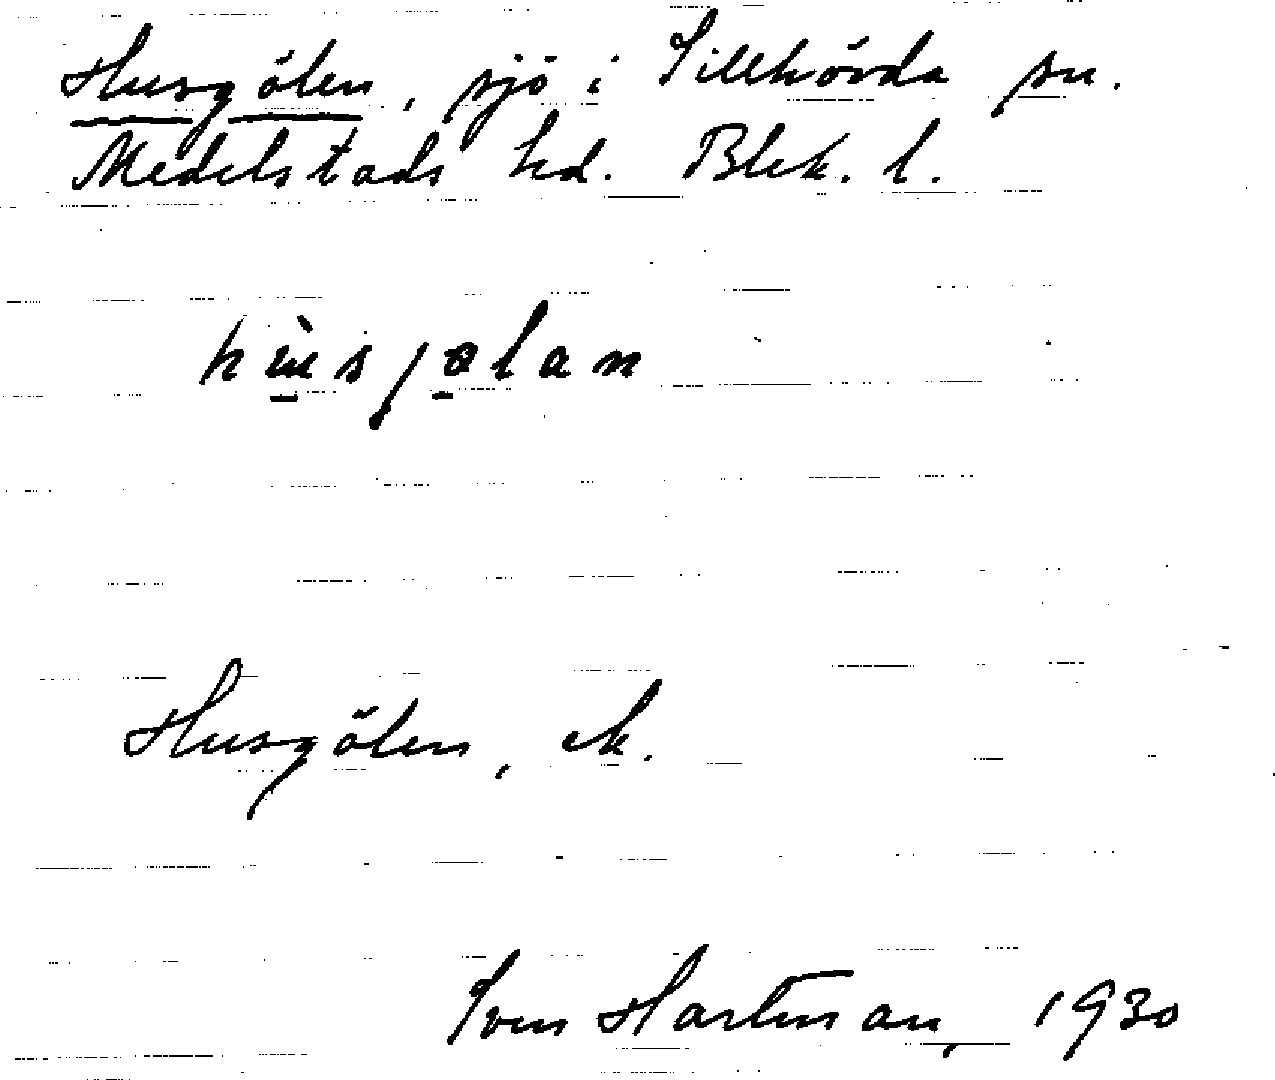 Husgölen, sjö i Sillhövda sn.
Medelstads hd. Blek. l.
Husgölen, ek.
Sven Hartman, 1930